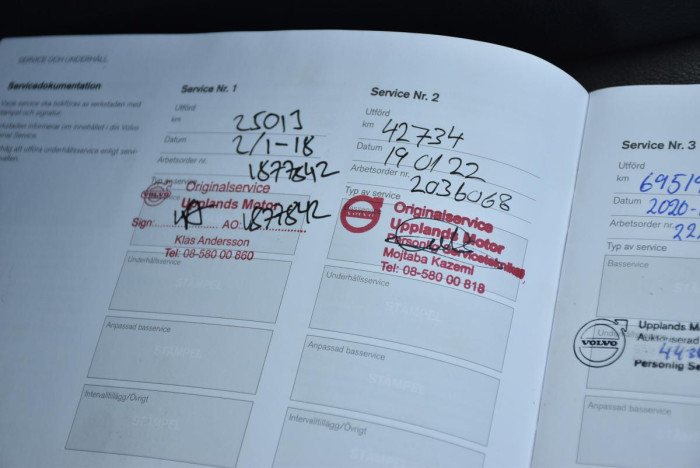 SERVICE OCH UNDERHÅLL
Servicedokumentation
Varje service ska bokföras av verkstaden med
stämpel och signatur.
Service Nr. 1
Utförd
km 25013
Datum 2/1-18
Arbetsorder nr. 1877842
Typ av service
VOLVO
Originalservice
Upplands Motor
Sign AO: 1877842
Klas Andersson
Tel: 08-580 00 860
Underhållsservice
Anpassad basservice
Intervalltillägg/Övrigt
Service Nr. 2
Utförd
km 42734
Datum 19 01 22
Arbetsorder nr. 2036068
Typ av service
VOLVO
Originalservice
Upplands Motor
Personlig Servicetekniker
Mojtaba Kazemi
Tel: 08-580 00 818
Underhållsservice
Anpassad basservice
Intervalltillägg/Övrigt
Service Nr. 3
Utförd
km 6951
Datum 2020-
Arbetsorder nr. 22
Typ av service
Basservice
VOLVO
Upplands M
Auktoriserad
Personlig Se
Anpassad basservice